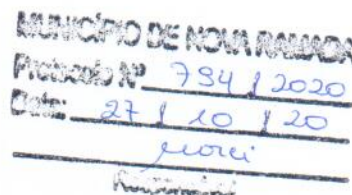 MUNICÍPIO DE NOVA RAMADA
Protocolo Nº 794 / 2020
Data: 27 / 10 / 20